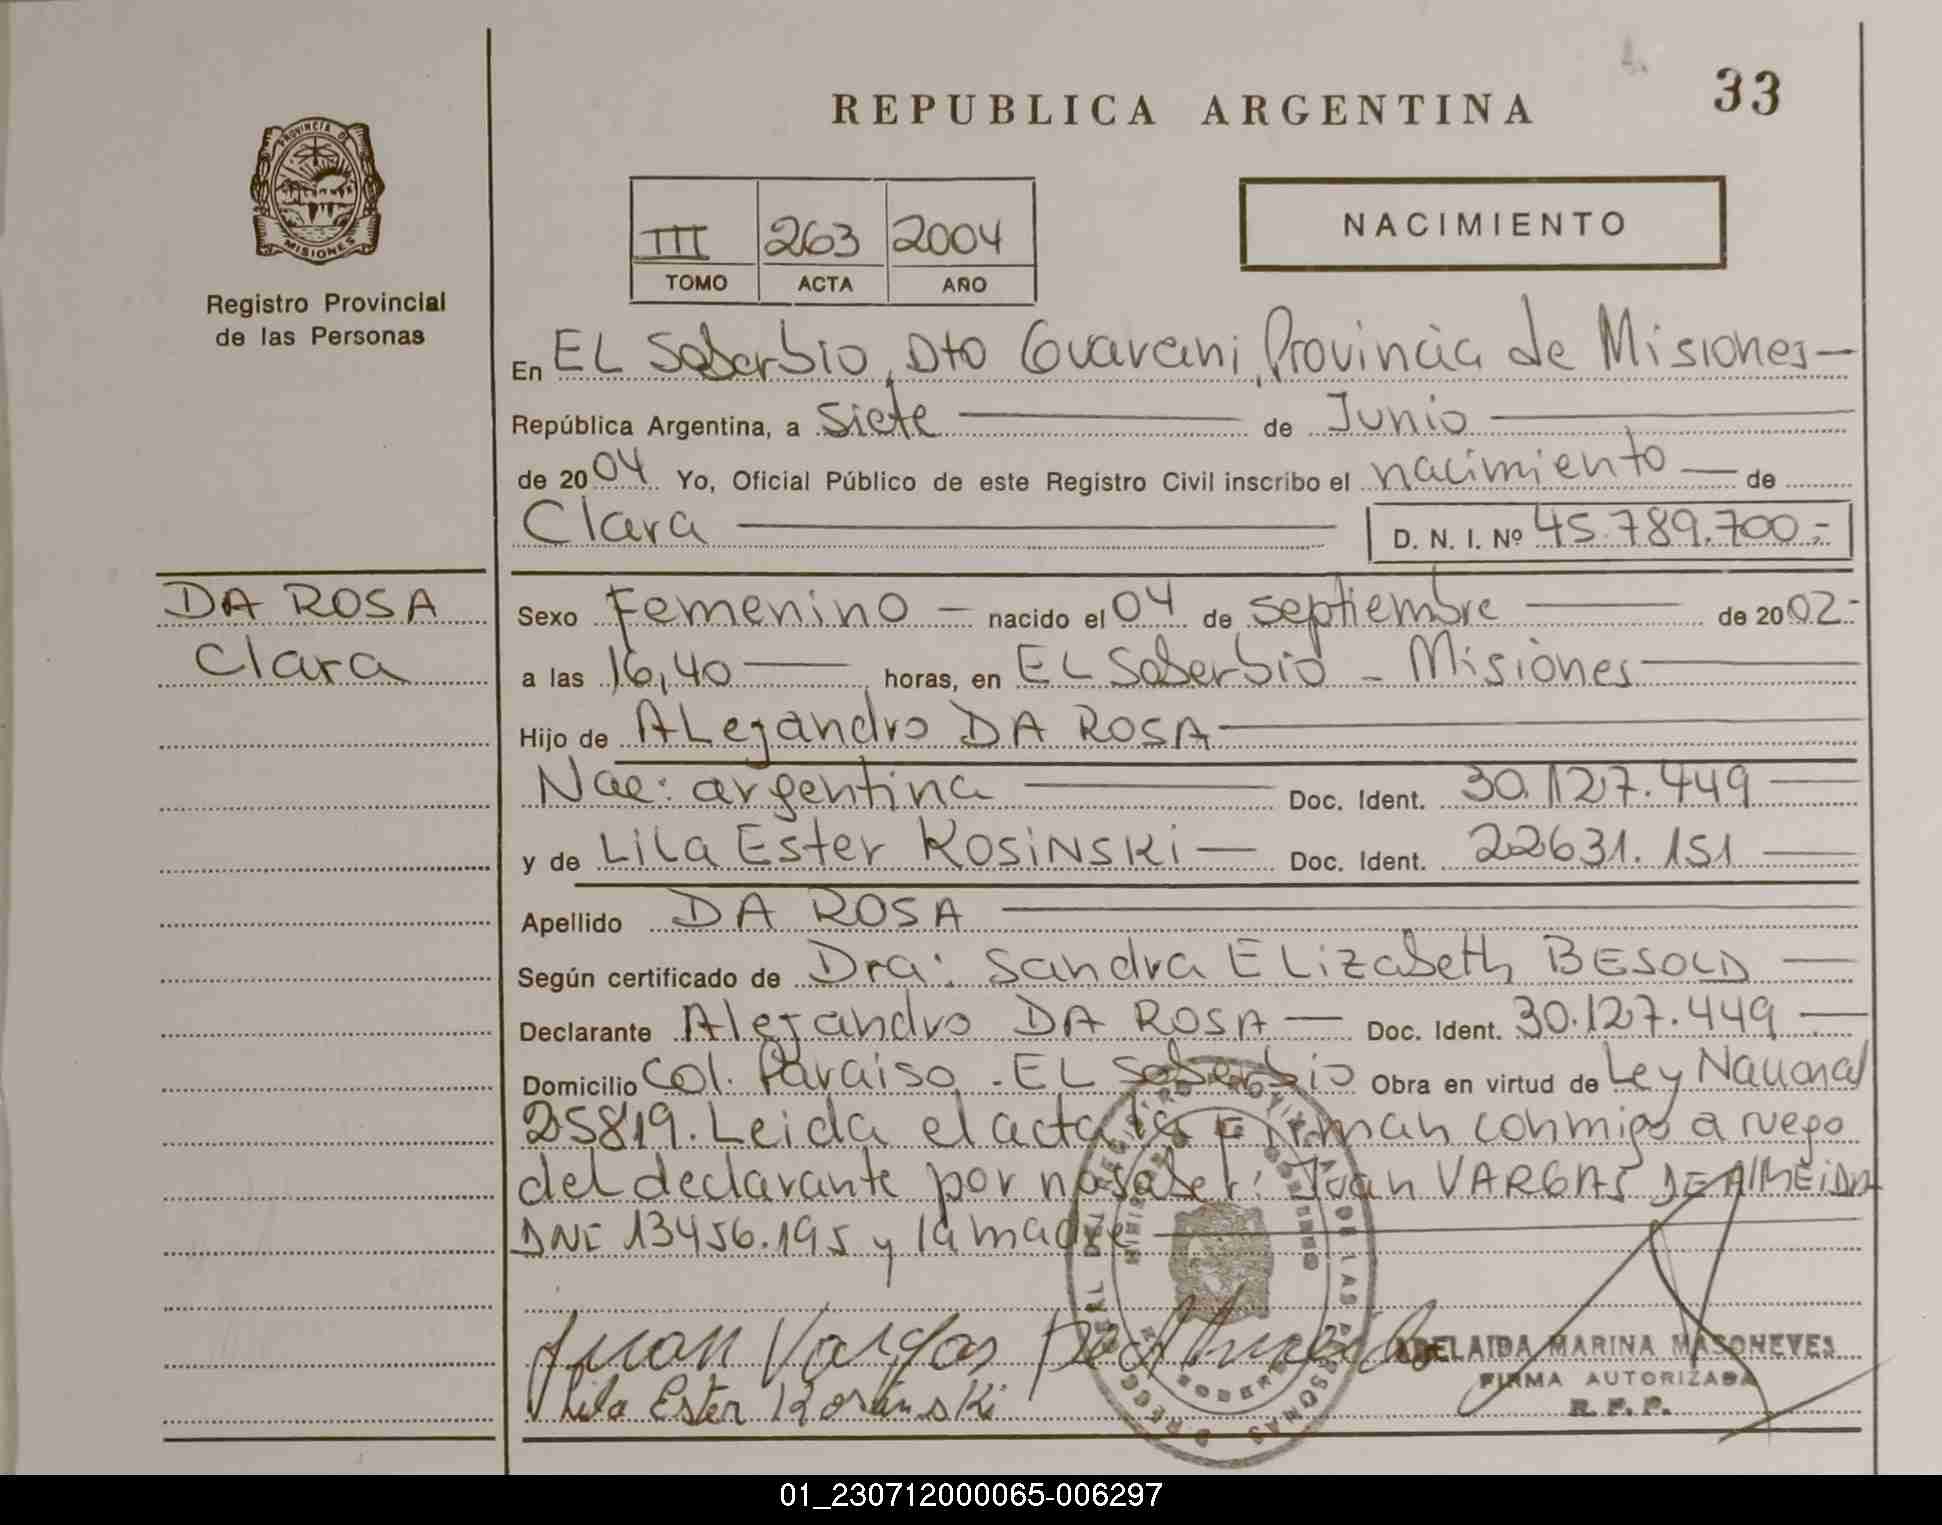 REPUBLICA ARGENTINA
33
PROVINCIA DE
MISIONES
Registro Provincial
de las Personas
III 263 2004
TOMO ACTA AÑO
NACIMIENTO
En EL Soberbio, Dto Guarani, Provincia de Misiones
República Argentina, a Siete de Junio
de 2004 Yo, Oficial Público de este Registro Civil inscribo el nacimiento de
Clara D. N. I. Nº 45.789.700
DA ROSA
Clara
Sexo Femenino nacido el 04 de septiembre de 2002
a las 16,40 horas, en EL Soberbio - Misiones
Hijo de ALejandro DA ROSA
Nac: argentina Doc. Ident. 30.127.449
y de LiLa Ester KOSiNSKi Doc. Ident. 22631.151
Apellido DA ROSA
Según certificado de Dra: Sandra ELizabeth BESOLD
Declarante Alejandro DA ROSA Doc. Ident. 30.127.449
Domicilio Col. Paraiso - EL Soberbio Obra en virtud de Ley Nacional
25819. Leida el acta la firman conmigo a ruego
del declarante por no saber: Juan VARGAS DE ALMEiDA
DNI 13456.195 y la madre
Juan Vargas De Almeida
Lila Ester Kosinski
ADELAIDA MARINA MASONEVES
FIRMA AUTORIZADA
R. P. P.
01_230712000065-006297